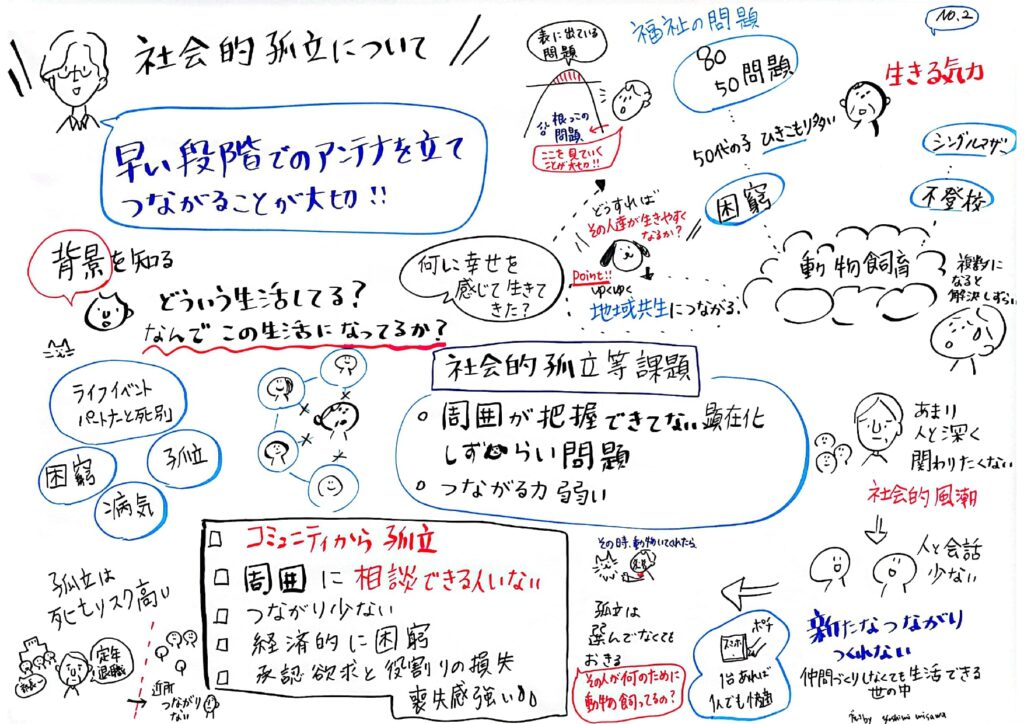 NO.2
社会的孤立について
早い段階でのアンテナを立て
つながることが大切!!
表に出ている
問題
根っこの
問題
ここを見ていく
ことが大切!!
福祉の問題
80
50問題
50代の子 ひきこもり多い
生きる気力
シングルマザー
不登校
困窮
動物飼育
複数に
なると
解決しずらい
どうすれば
その人達が生きやすく
なるか?
Point!!
ゆくゆく
地域共生につながる.
何に幸せを
感じて生きて
きた?
背景を知る
どういう生活してる?
なんでこの生活になってるか?
ライフイベント
パートナーと死別
困窮
孤立
病気
社会的孤立等課題
周囲が把握できてない顕在化
しずらい問題
つながる力弱い
あまり
人と深く
関わりたくない
社会的風潮
人と会話
少ない
新たなつながり
つくれない
仲間づくりしなくても生活できる
世の中
ポチ
スマホ
1台あれば
1人でも快適
その時、動物いてくれたら
孤立は
選んでなくても
おきる
その人が何のために
動物飼ってるの?
□ コミュニティから孤立
□ 周囲に相談できる人いない
□ つながり少ない
□ 経済的に困窮
□ 承認欲求と役割りの損失
喪失感強い
孤立は
死亡リスク高い
定年
退職
近所
つながり
ない
by yoshimi misawa